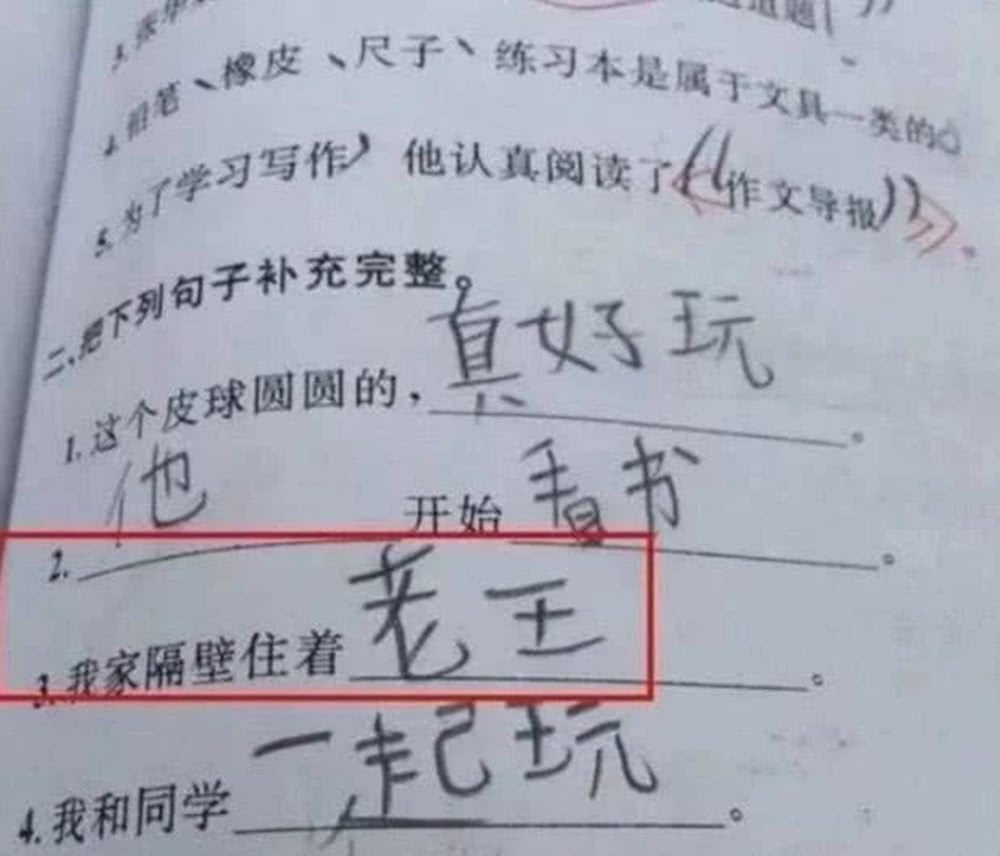 3.张华
道题
4.铅笔、橡皮、尺子、练习本是属于文具一类的。
5.为了学习写作，他认真阅读了《作文导报》。
二、把下列句子补充完整。
1.这个皮球圆圆的，真好玩。
2.他开始看书。
3.我家隔壁住着老王。
4.我和同学一起玩。